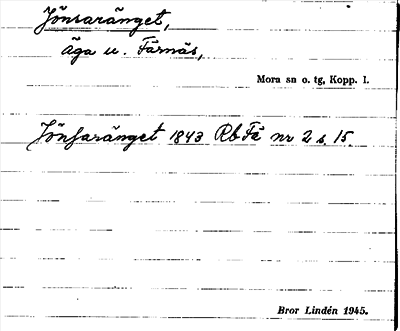 Jönsaränget,
äga u. Färnäs,
Mora sn o. tg, Kopp. l.
Jönsaränget 1843 Rb Fä nr 2 s. 15.
Bror Lindén 1945.